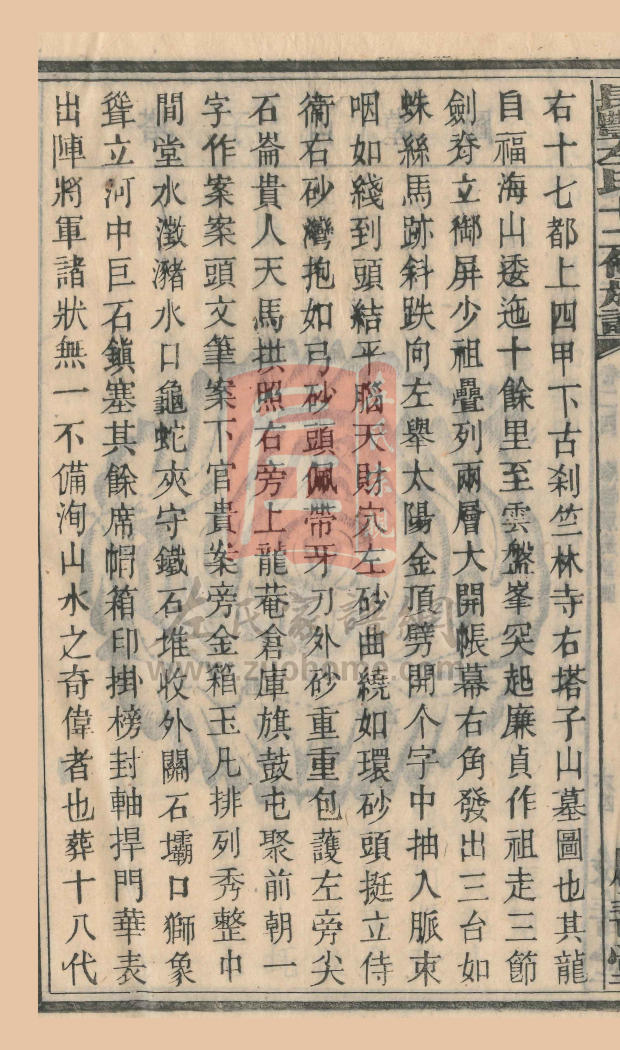 長豐左氏十二修族譜
右十七都上四甲下古刹竺林寺右塔子山墓圖也其龍
自福海山逶迤十餘里至雲盤峯突起廉貞作祖走三節
劍脊立御屏少祖疊列兩層大開帳幕右角發出三台如
蛛絲馬跡斜跌向左舉太陽金頂劈開个字中抽入脈束
咽如綫到頭結平腦天財穴左砂曲繞如環砂頭挺立侍
衛右砂灣抱如弓砂頭佩帶牙刀外砂重重包護左旁尖
石崙貴人天馬拱照右旁上龍菴倉庫旗鼓屯聚前朝一
字作案案頭文筆案下官貴案旁金箱玉几排列秀整中
間堂水澂瀦水口龜蛇夾守鐵石堆收外關石壩口獅象
聳立河中巨石鎮塞其餘席帽箱印掛榜封軸捍門華表
出陣將軍諸狀無一不備洵山水之奇偉者也葬十八代
左氏家譜網
www.zuohome.com